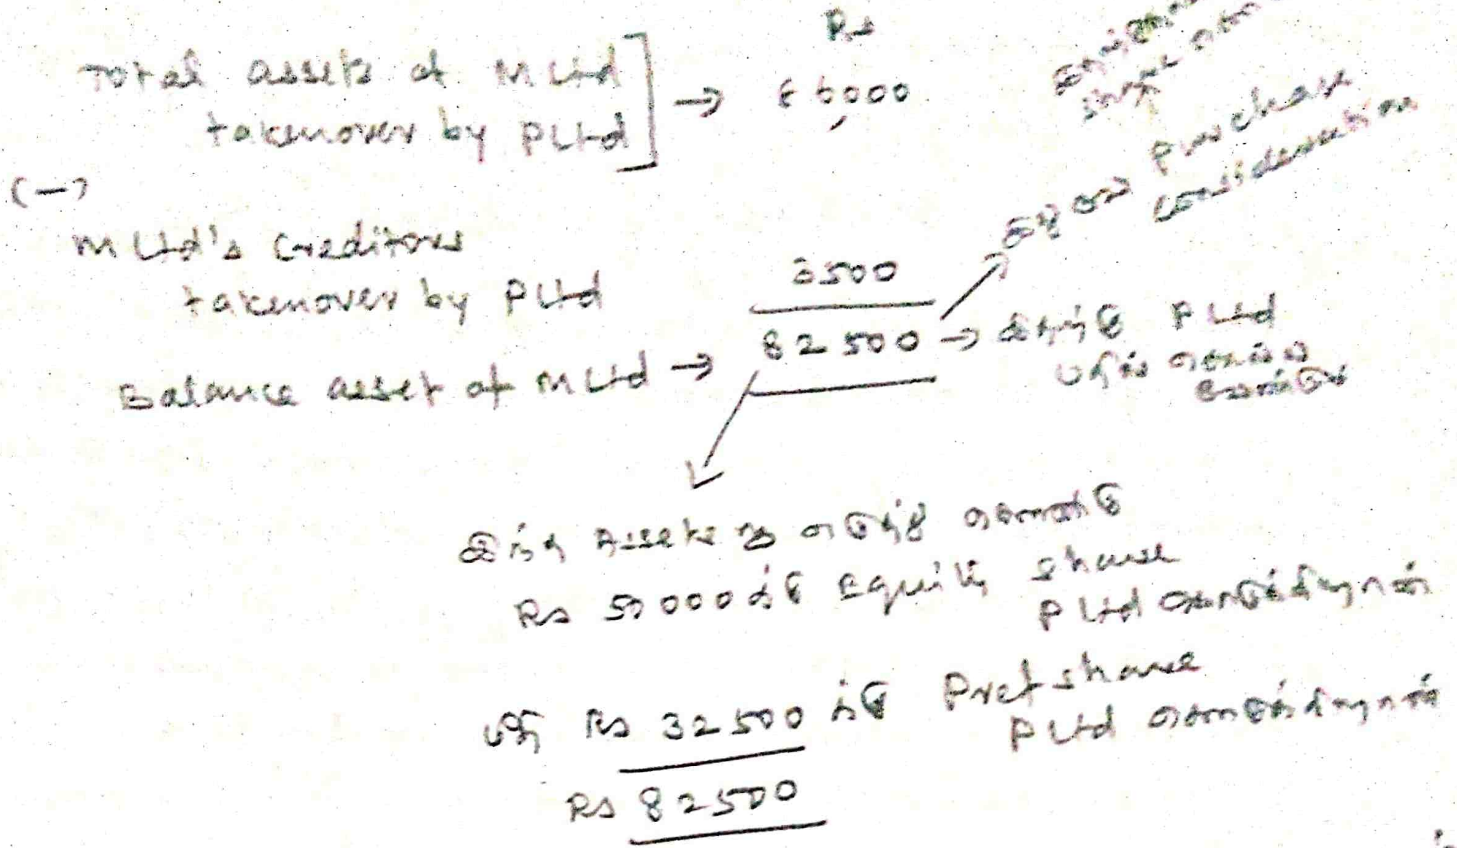 Rs
Total assets of M Ltd
takenover by P Ltd ] → 86000
(−)
M Ltd's Creditors
takenover by P Ltd
3500
Balance asset of M Ltd → 82500 → இதற்கு P Ltd
பதில் சொல்ல
வேண்டும்
இதுவே Purchase
consideration
இந்த Assets ஐ எடுத்து கொண்டு
Rs 50000க்கு Equity share
P Ltd கொடுக்கிறார்கள்
மீதி Rs 32500 க்கு Pref share
P Ltd கொடுக்கிறார்கள்
Rs 82500